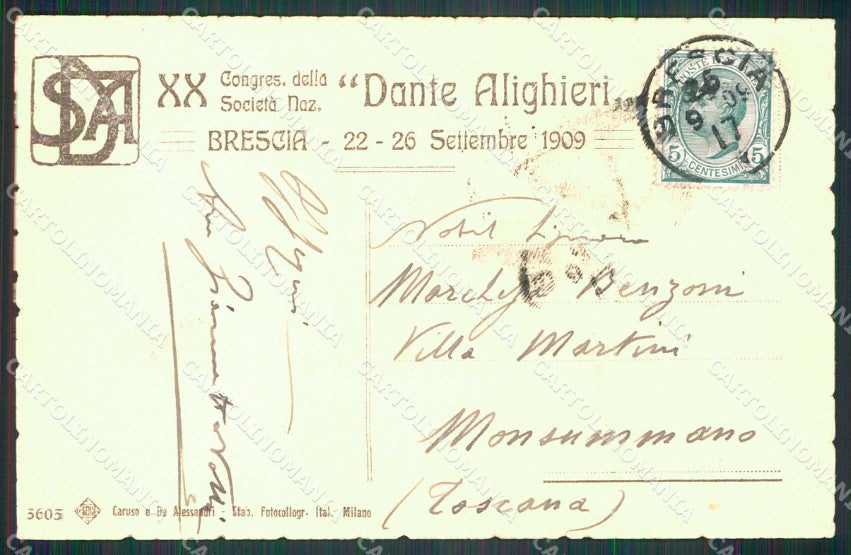 SDA
XX Congres. della Società Naz. “Dante Alighieri„
BRESCIA - 22 - 26 Settembre 1909
BRESCIA
9 17
POSTE
5 CENTESIMI 5
Nobil Signora
Marchesa Benzoni
Villa Martini
Monsummano
(Toscana)
3603 Caruso e De Alessandri - Stab. Fotocollogr. Ital. Milano
CARTOLINOMANIA